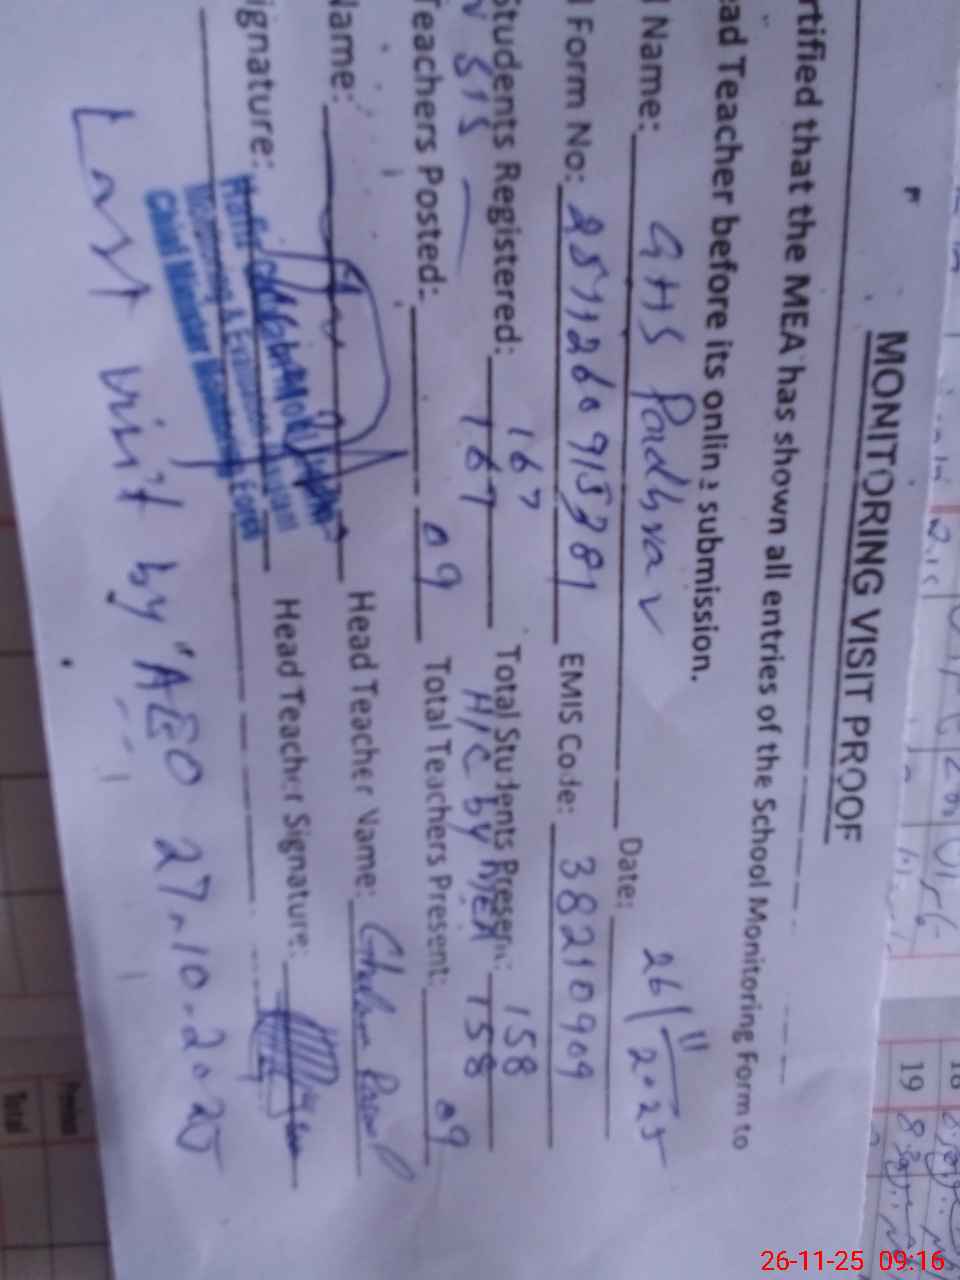 MONITORING VISIT PROOF
rtified that the MEA has shown all entries of the School Monitoring Form to
ead Teacher before its online submission.
l Name: GHS Padhrar Date: 26/11/2025
l Form No: 2511260915381 EMIS Code: 38210909
167 158
Students Registered: 167 Total Students Present: 158
N SIS H/C by MEA
Teachers Posted: 09 Total Teachers Present: 09
Name: Head Teacher Name: Ghulam
ignature: Head Teacher Signature:
Monitoring & Evaluation
Chief Minister Monitoring Force
Last visit by AEO 27-10-2025
19
Period
Total
26-11-25 09:16